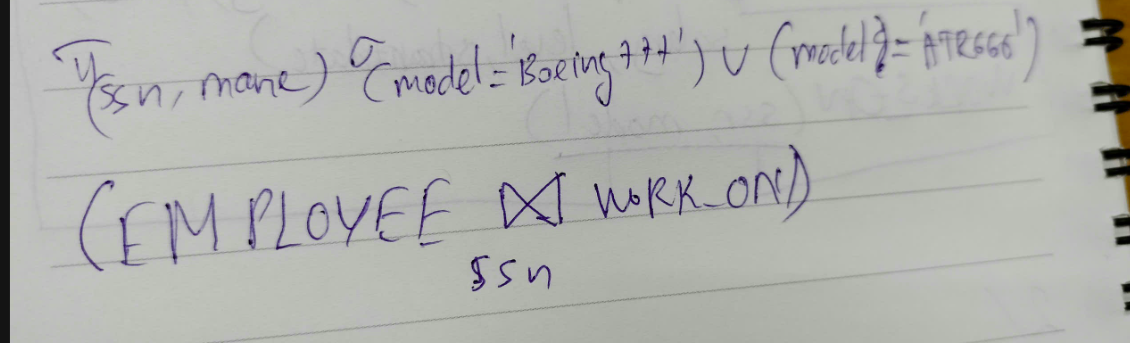 π(ssn, mane) σ(model='Boeing777') ∪ (model='ATR666')
(EMPLOYEE ⋈ WORK_ON)
ssn